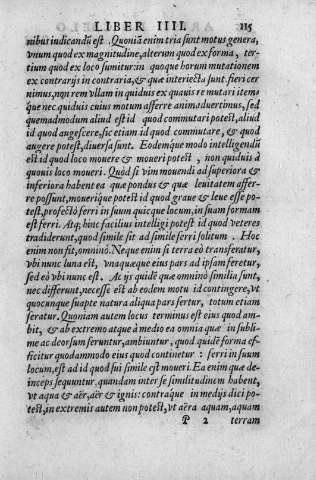 LIBER IIII. 115
nibus iudicandũ est. Quoniã enim tria sunt motus genera,
vnum quod ex magnitudine, alterum quod ex forma, ter-
tium quod ex loco sumitur: in quoque horum mutationem
ex contrarijs in contraria, & quæ interiecta sunt, fieri cer
nimus, non rem vllam in quiduis ex quauis re mutari: item
que nec quiduis cuius motum afferre animaduertimus, sed
quemadmodum aliud est id quod commutari potest, aliud
id quod augescere, sic etiam id quod commutare, & quod
augere potest, diuersa sunt. Eodemque modo intelligendũ
est id quod loco mouere & moueri potest, non quiduis à
quouis loco moueri. Quòd si vim mouendi ad superiora &
inferiora habent ea quæ pondus & quæ leuitatem affer-
re possunt, mouerique potest id quod graue & leue esse po-
test, profectò ferri in suum quicque locum, in suam formam
est ferri. Atq; hinc facilius intelligi potest id quod veteres
tradiderunt, quod simile sit ad simile ferri solitum. Hoc
enim non fit, omninò. Neque enim si terra eò transferatur,
vbi nunc luna est, vnaquæque eius pars ad ipsam feretur,
sed eò vbi nunc est. Ac ijs quidẽ quæ omninò similia sunt,
nec differunt, necesse est ab eodem motu id contingere, vt
quocunque suapte natura aliqua pars fertur, totum etiam
feratur. Quoniam autem locus terminus est eius quod am-
bit, & ab extremo atque à medio ea omnia quæ in subli-
me ac deorsum feruntur, ambiuntur, quod quidẽ forma ef-
ficitur quodammodo eius quod continetur: ferri in suum
locum, est ad id quod sui simile est moueri. Ea enim quæ de-
inceps sequuntur quandam inter se similitudinem habent,
vt aqua & aër, aër & ignis: contraque in medijs dici po-
test, in extremis autem non potest, vt aëra aquam, aquam
P 2 terram